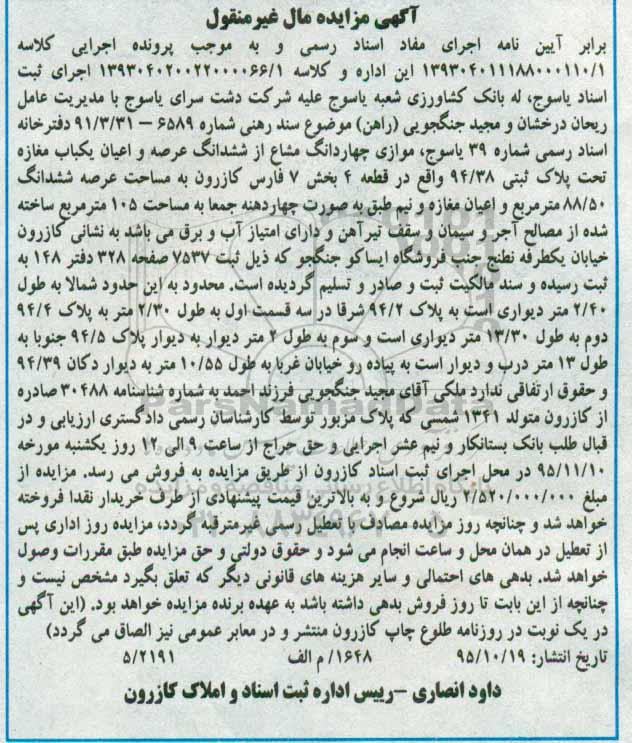 آگهی مزایده مال غیرمنقول
برابر آیین نامه اجرای مفاد اسناد رسمی و به موجب پرونده اجرایی کلاسه
۱۳۹۳۰۴۰۱۱۱۸۸۰۰۰۱۱۰/۱ این اداره و کلاسه ۱۳۹۳۰۴۰۲۰۰۲۲۰۰۰۰۶۶/۱ اجرای ثبت
اسناد یاسوج، له بانک کشاورزی شعبه یاسوج علیه شرکت دشت سرای یاسوج با مدیریت عامل
ریحان درخشان و مجید جنگجویی (راهن) موضوع سند رهنی شماره ۶۵۸۹ – ۹۱/۳/۳۱ دفترخانه
اسناد رسمی شماره ۳۹ یاسوج، موازی چهاردانگ مشاع از ششدانگ عرصه و اعیان یکباب مغازه
تحت پلاک ثبتی ۹۴/۳۸ واقع در قطعه ۴ بخش ۷ فارس کازرون به مساحت عرصه ششدانگ
۸۸/۵۰ مترمربع و اعیان مغازه و نیم طبق به صورت چهاردهنه جمعا به مساحت ۱۰۵ مترمربع ساخته
شده از مصالح آجر و سیمان و سقف تیرآهن و دارای امتیاز آب و برق می باشد به نشانی کازرون
خیابان یکطرفه نطنج جنب فروشگاه ایساکو جنگجو که ذیل ثبت ۷۵۳۷ صفحه ۳۲۸ دفتر ۱۴۸ به
ثبت رسیده و سند مالکیت ثبت و صادر و تسلیم گردیده است. محدود به این حدود شمالا به طول
۲/۴۰ متر دیواری است به پلاک ۹۴/۲ شرقا در سه قسمت اول به طول ۲/۳۰ متر به پلاک ۹۴/۴
دوم به طول ۱۳/۳۰ متر دیواری است و سوم به طول ۲ متر دیوار به دیوار پلاک ۹۴/۵ جنوبا به
طول ۱۳ متر درب و دیوار است به پیاده رو خیابان غربا به طول ۱۰/۵۵ متر به دیوار دکان ۹۴/۳۹
و حقوق ارتفاقی ندارد ملکی آقای مجید جنگجویی فرزند احمد به شماره شناسنامه ۳۰۴۸۸ صادره
از کازرون متولد ۱۳۴۱ شمسی که پلاک مزبور توسط کارشناسان رسمی دادگستری ارزیابی و در
قبال طلب بانک بستانکار و نیم عشر اجرایی و حق حراج از ساعت ۹ الی ۱۲ روز یکشنبه مورخه
۹۵/۱۱/۱۰ در محل اجرای ثبت اسناد کازرون از طریق مزایده به فروش می رسد. مزایده از
مبلغ ۲/۵۲۰/۰۰۰/۰۰۰ ریال شروع و به بالاترین قیمت پیشنهادی از طرف خریدار نقدا فروخته
خواهد شد و چنانچه روز مزایده مصادف با تعطیل رسمی غیرمترقبه گردد، مزایده روز اداری پس
از تعطیل در همان محل و ساعت انجام می شود و حقوق دولتی و حق مزایده طبق مقررات وصول
خواهد شد. بدهی های احتمالی و سایر هزینه های قانونی دیگر که تعلق بگیرد مشخص نیست و
چنانچه از این بابت تا روز فروش بدهی داشته باشد به عهده برنده مزایده خواهد بود. (این آگهی
در یک نوبت در روزنامه طلوع چاپ کازرون منتشر و در معابر عمومی نیز الصاق می گردد)
تاریخ انتشار: ۹۵/۱۰/۱۹ ۱۶۴۸/ م الف ۵/۲۱۹۱
داود انصاری –رییس اداره ثبت اسناد و املاک کازرون